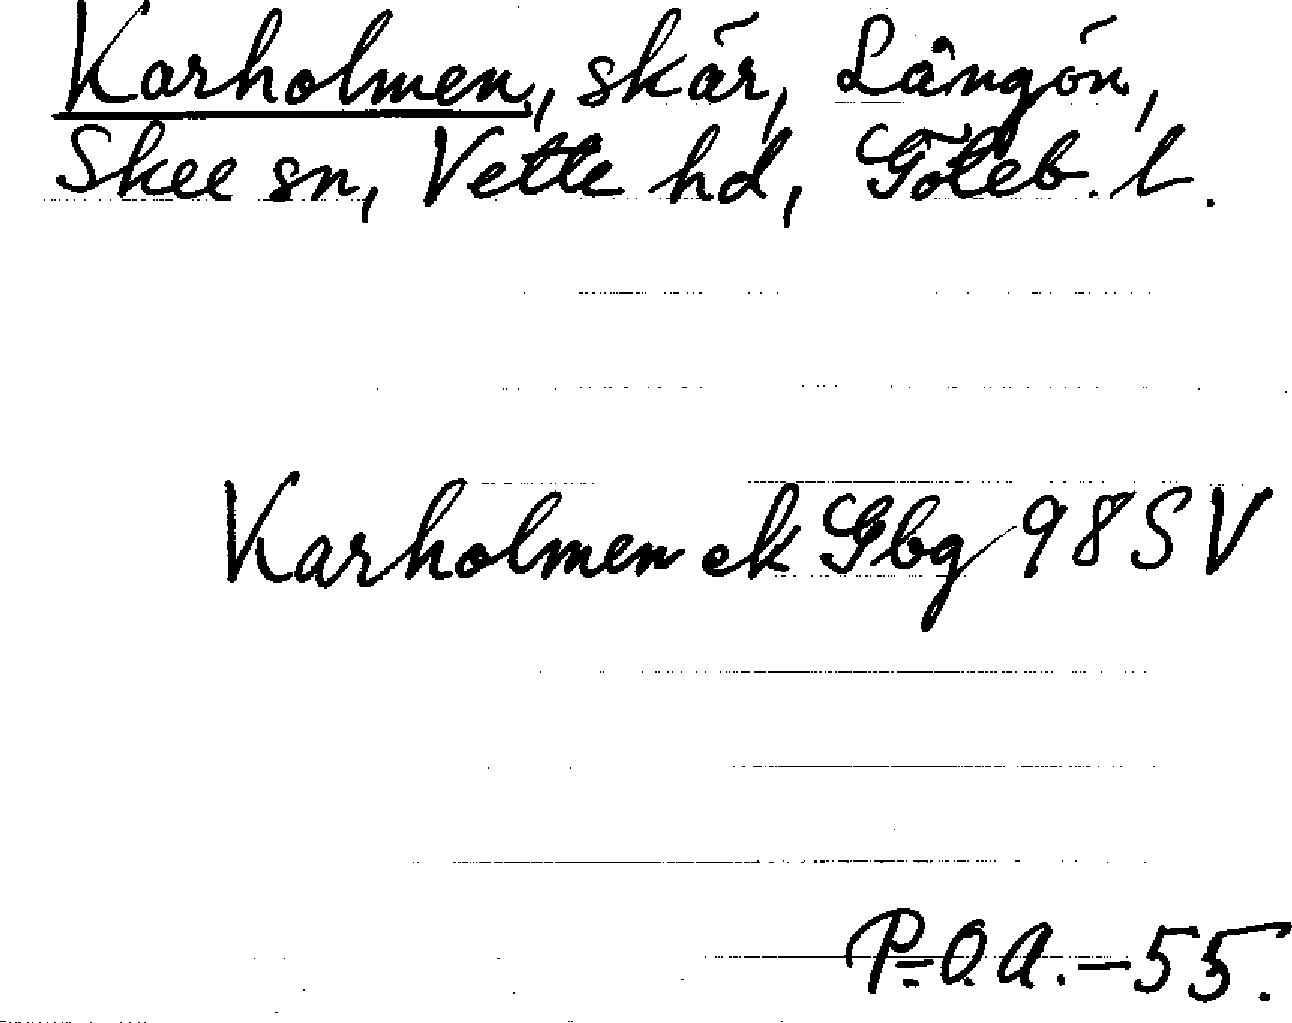 Karholmen, skär, Långön,
Skee sn, Vette hd, Göteb. l.
Karholmen ek Gbg 98 SV
P-O.A. - 55.